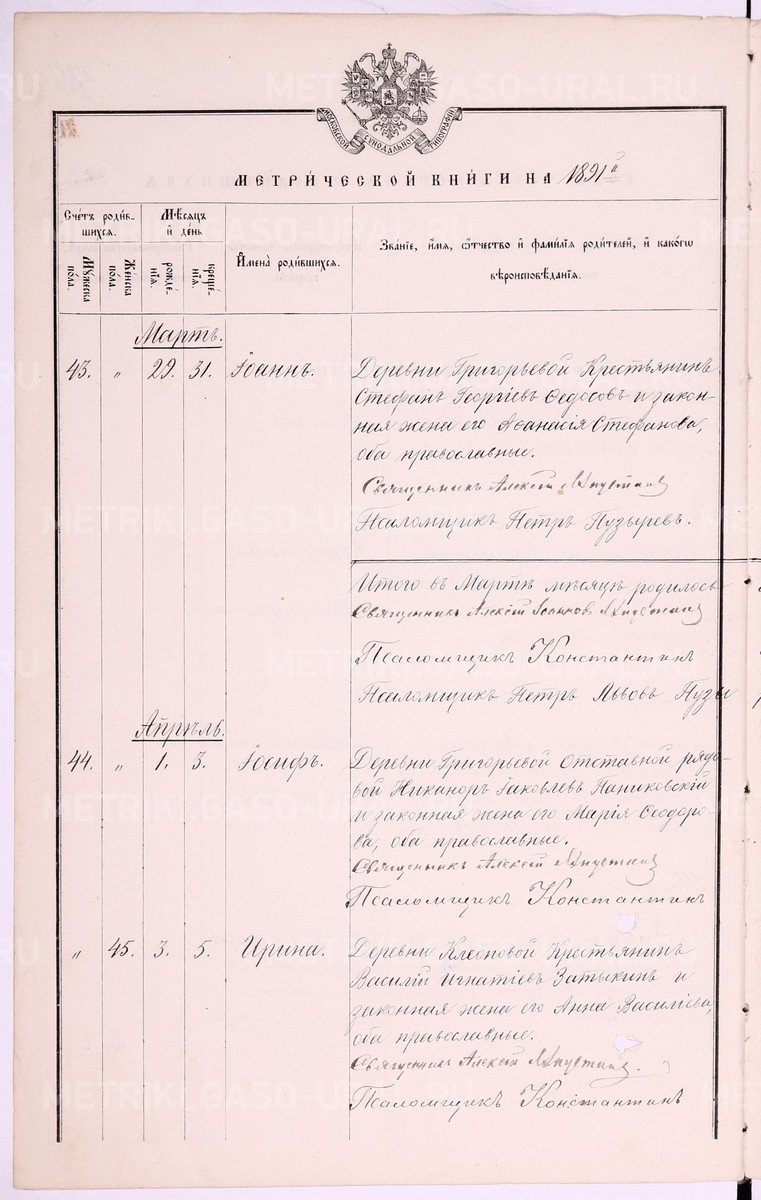 МОСКОВСКОЙ СѴНОДАЛЬНОЙ ТИПОГРАФІИ
МЕТРИ́ЧЕСКОЙ КНИ́ГИ НА 1891й
Сче́тъ роди́вшихся.
Мѣ́сяцъ и́ де́нь
И҆мена̀ роди́вшихся.
Зва́нїе, и҆́мя, ѻ҆́тчество и҆ фами́лїя роди́телей, и҆ како́гѡ
вѣроисповѣ́данїя.
Мꙋ́жеска по́ла.
Же́нска по́ла.
рожде́нїя.
креще́нїя.
Мартъ.
43. " 29. 31. Іоаннъ. Деревни Григорьевой Крестьянинъ
Стефанъ Георгіевъ Ѳедосовъ и закон-
ная жена его Аѳанасія Стефанова,
оба православные.
Священникъ Алексій
Псаломщикъ Петръ Пузыревъ.
Итого въ Мартѣ мѣсяцѣ родилось
Священникъ Алексій Іоаннов
Псаломщикъ Константинъ
Псаломщикъ Петръ Львовъ Пузы
Апрѣль.
44. " 1. 3. Іосифъ. Деревни Григорьевой отставной рядо-
вой Никаноръ Іаковлевъ Паниковскій
и законная жена его Марія Ѳеодоро-
ва, оба православные.
Священникъ Алексій
Псаломщикъ Константинъ
" 45. 3. 5. Ирина. Деревни Клеоповой Крестьянинъ
Василій Игнатіевъ Затыкинъ и
законная жена его Анна Василіева,
оба православные.
Священникъ Алексій
Псаломщикъ Константинъ
METRIKI.GASO-URAL.RU